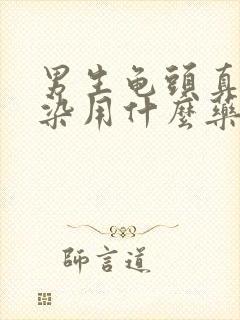 男生龟頭真
染用什麼藥
師言道